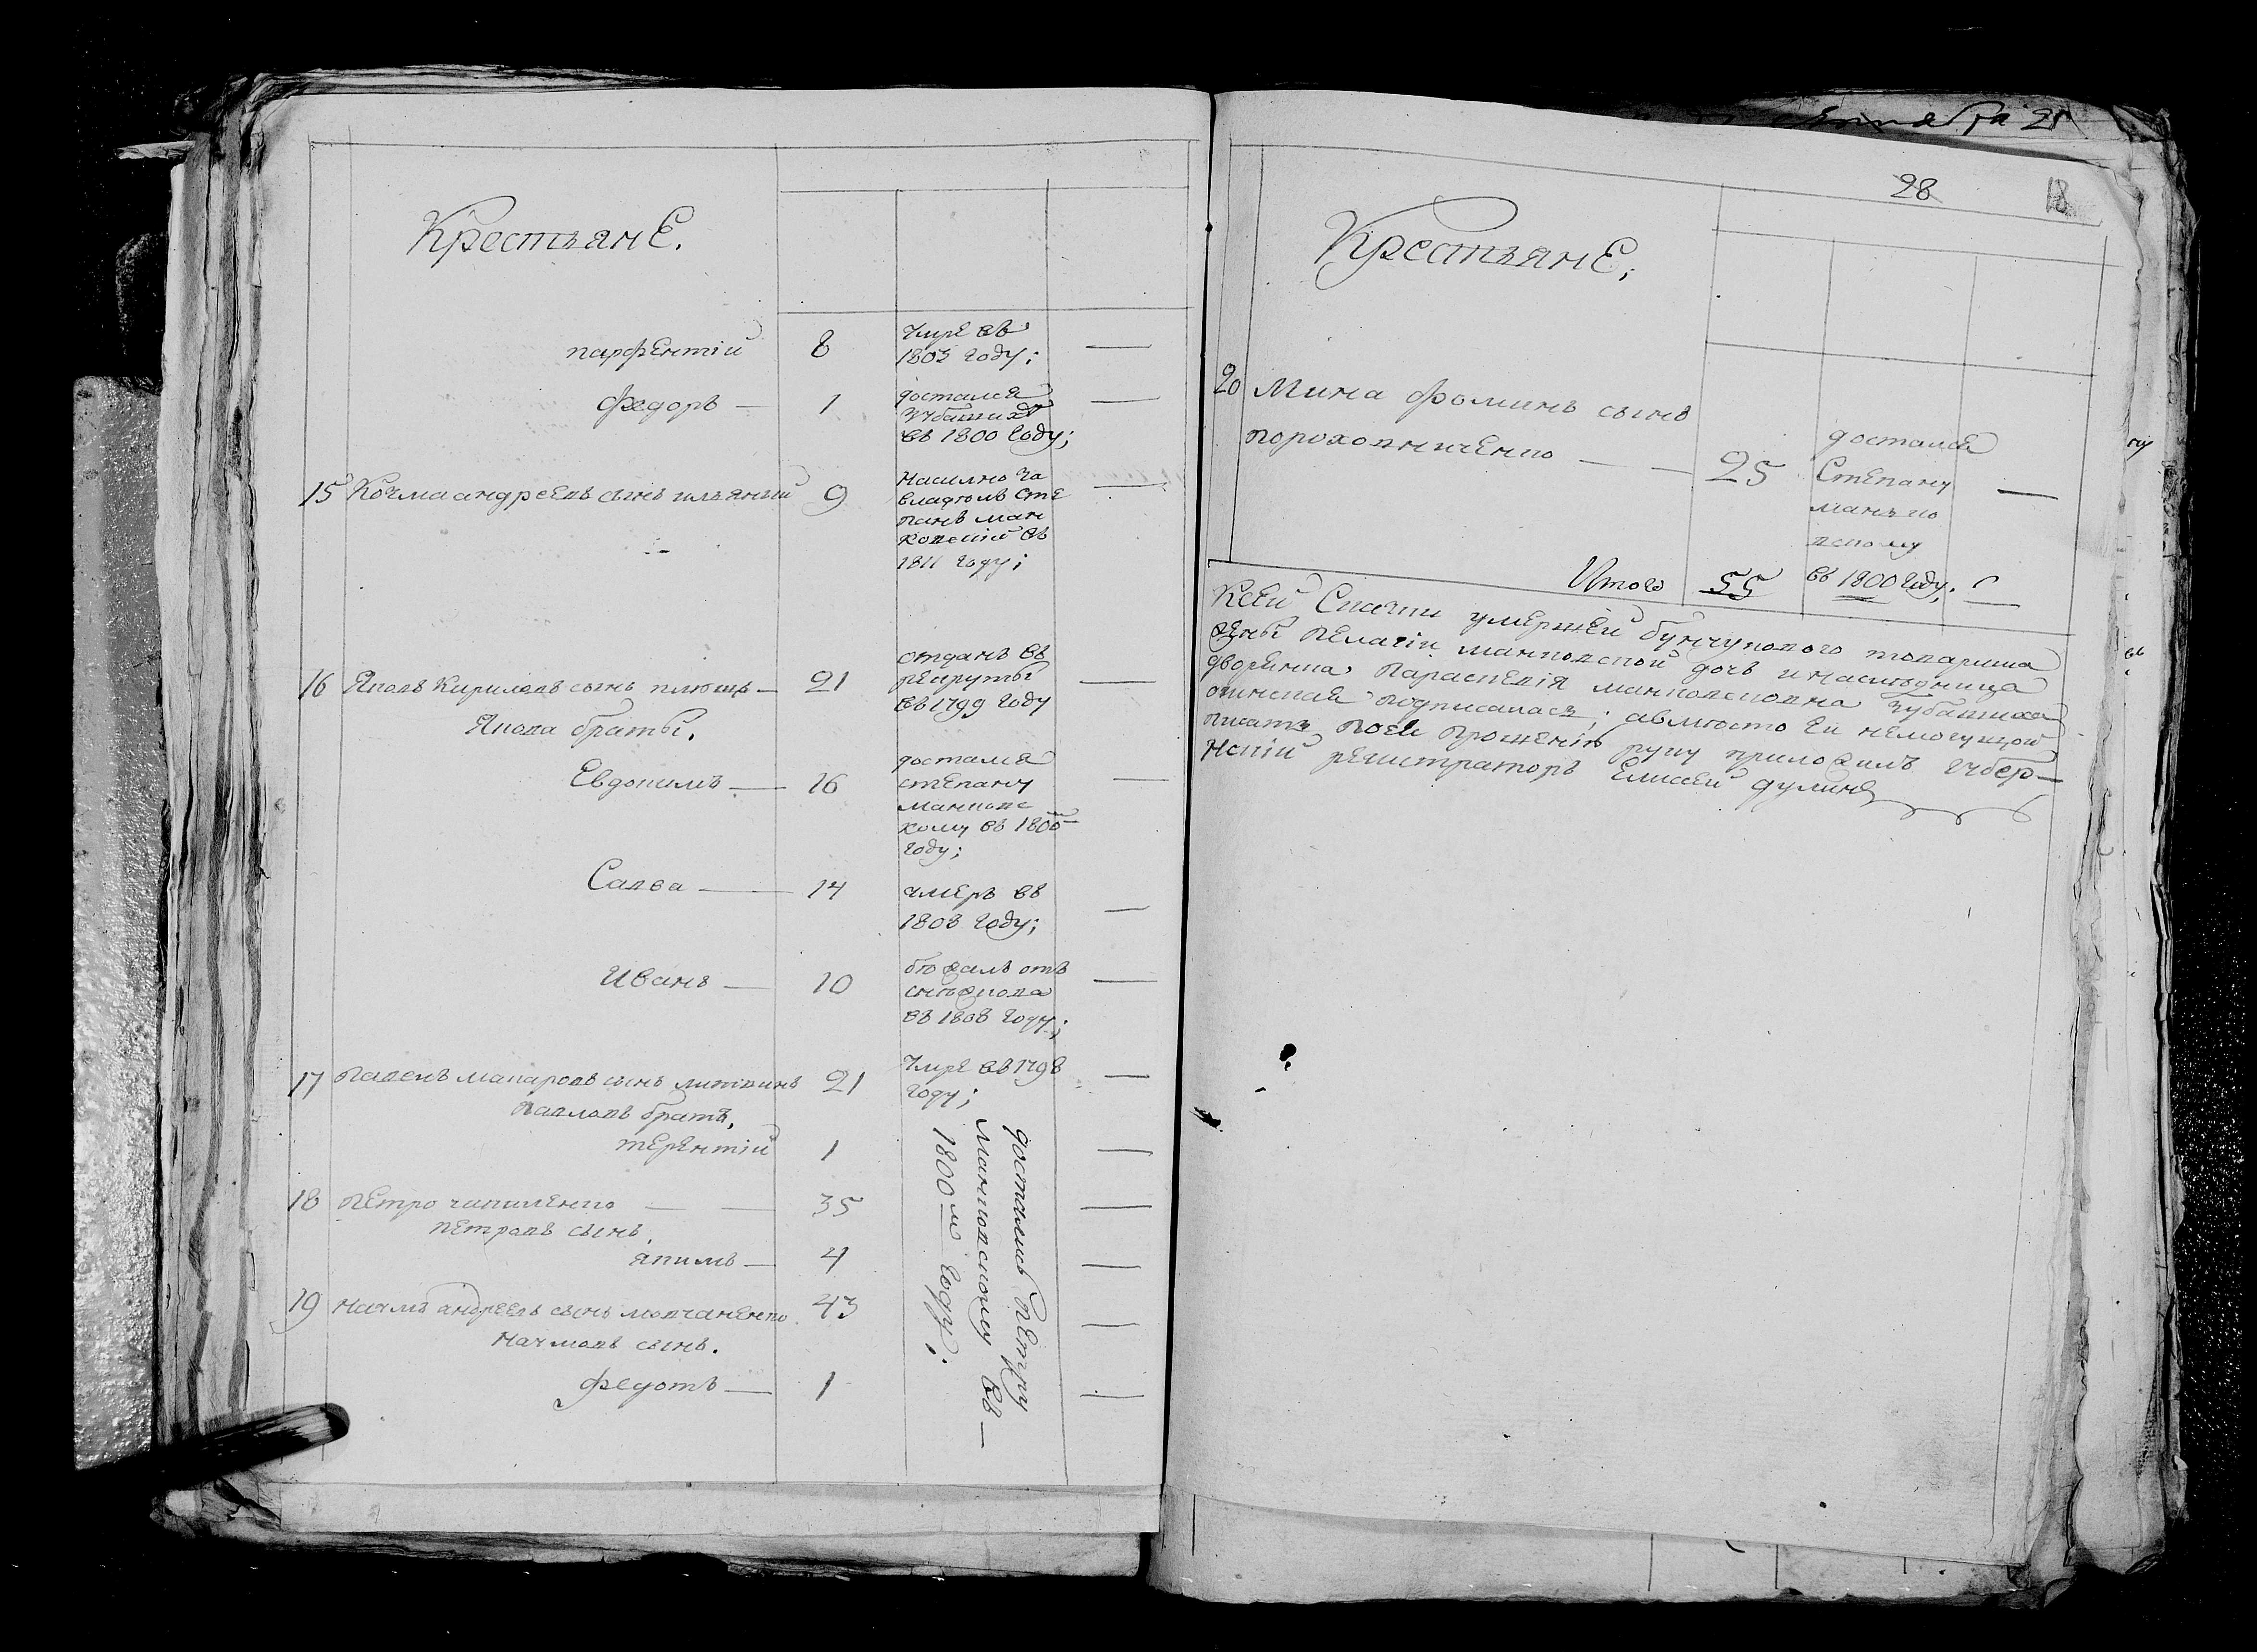 Крестьяне.
парфентій 8 Умре въ —
1803 году;
федоръ — 1 достался —
Зубашихѣ
въ 1800 году;
15 Козма андреевъ сынъ ильяный 9 насилно за —
владѣлъ Сте
панъ ман
ковскій въ
1811 году;
16 Яковъ Кириловъ сынъ плющь — 21 отданъ въ —
рекруты
въ 1799 году
Якова братьѣ.
Евдокимъ — 16 достался —
степану
манковс
кому въ 1800
году;
Савва — 14 умеръ въ —
1808 году;
Иванъ — 10 бѣжалъ отъ —
въ 1808 году;
17 павелъ макаровъ сынъ литвинъ 21 Умре въ 1798 —
году;
павловъ братъ,
терентій 1 —
18 петро чапиленко — — 35 —
петровъ сынъ,
якимъ — 4 —
19 наумъ андреевъ сынъ мовчаненко 43 —
наумовъ сынъ.
федотъ — 1 —
достались петру
манковскому въ —
1800м году;
28 18
Крестьяне;
20 Мина фоминъ сынъ
пороховниченко — — 25 достался
Степану —
манько
вскому
Итого 55 въ 1800 году;
К сей Скаски умершей бунчукового товариша
жены пелагіи манковской дочь и наслѣдница
дворянка параскевія манковсковна Зубашихо
подписалась; авмѣсто ей немогущой
писать поеи прошенію руку приложилъ Губер—
нскій регистраторъ Елисей дулинъ